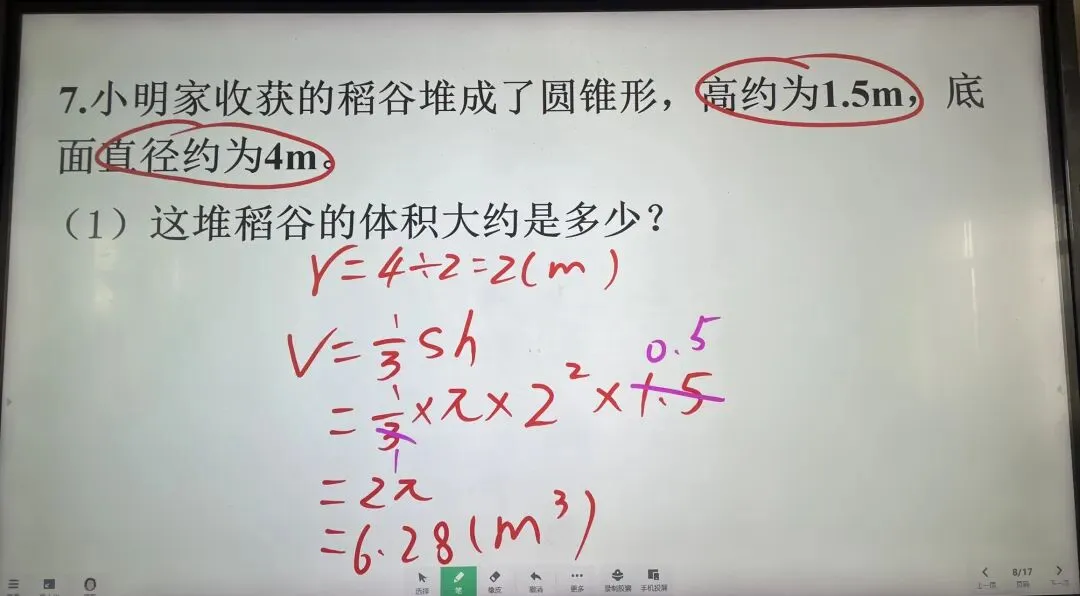 7.小明家收获的稻谷堆成了圆锥形，高约为1.5m，底
面直径约为4m。
（1）这堆稻谷的体积大约是多少？
r=4÷2=2(m)
V=1/3 Sh
0.5
=1/3×π×2²×1.5
1
=2π
=6.28(m³)
选择 笔 橡皮 撤消 更多 录制胶囊 手机投屏
8/17
上一页 页码 下一页